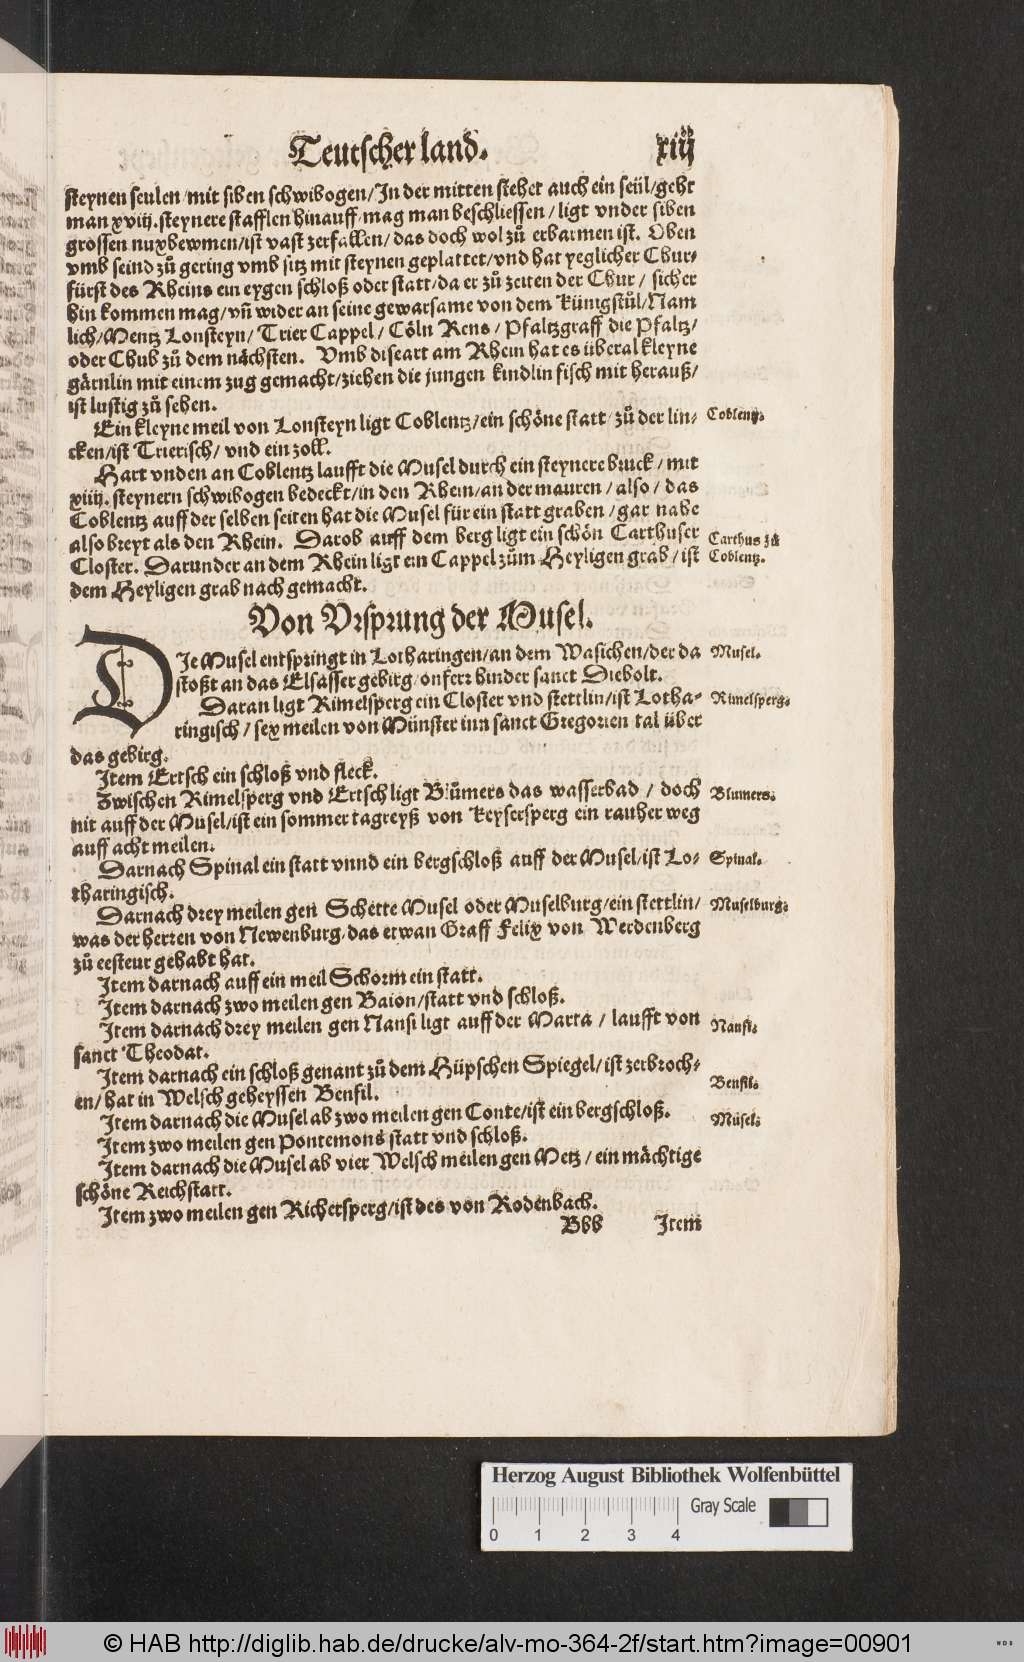 Teutscher land. xiij
steynen seulen/mit siben schwibogen/In der mitten stehet auch ein seül/geht
man xviij. steynere stafflen hinauff/mag man beschliessen/ligt vnder siben
grossen nuxbewmen/ist vast zerfallen/das doch wol zů erbarmen ist. Oben
vmb seind zů gering vmb sitz mit steynen geplattet/vnd hat yeglicher Chur-
fürst des Rheins ein eygen schloß oder statt/da er zů zeiten der Chur/sicher
hin kommen mag/vñ wider an seine gewarsame von dem Künigstůl/Nam
lich/Mentz Lonsteyn/Trier Cappel/Cöln Rens/Pfaltzgraff die Pfaltz/
oder Chub zů dem nächsten. Vmb diseart am Rhein hat es überal kleyne
gärnlin mit einem zug gemacht/ziehen die jungen kindlin fisch mit herauß/
ist lustig zů sehen.
Ein kleyne meil von Lonsteyn ligt Coblentz/ein schöne statt/zů der lin-
cken/ist Trierisch/vnd ein zoll.
Coblentz.
Hart vnden an Coblentz laufft die Musel durch ein steynere bruck/mit
xiiij. steynern schwibogen bedeckt/in den Rhein/an der mauren/also/das
Coblentz auff der selben seiten hat die Musel für ein statt graben/gar nahe
also breyt als den Rhein. Darob auff dem berg ligt ein schön Carthuser
Closter. Darunder an dem Rhein ligt ein Cappel zům Heyligen grab/ist
dem Heyligen grab nach gemacht.
Carthus zů
Coblentz.
Von Vrsprung der Musel.
DIe Musel entspringt in Lotharingen/an dem Wasichen/der da
stoßt an das Elsasser gebirg/onferr hinder sanct Diebolt.
Musel.
Daran ligt Rimelsperg ein Closter vnd stettlin/ist Lotha-
ringisch/sex meilen von Münster inn sanct Gregorien tal über
das gebirg.
Rimelsperg.
Item Ertsch ein schloß vnd fleck.
Zwischen Rimelsperg vnd Ertsch ligt Blůmers das wasserbad/doch
nit auff der Musel/ist ein sommer tagreyß von Keysersperg ein rauher weg
auff acht meilen.
Blumers.
Darnach Spinal ein statt vnnd ein bergschloß auff der Musel/ist Lo-
tharingisch.
Spinal.
Darnach drey meilen gen Schette Musel oder Muselburg/ein stettlin/
was der herren von Newenburg/das etwan Graff Felix von Werdenberg
zů eesteur gehabt hat.
Muselburg.
Item darnach auff ein meil Schorm ein statt.
Item darnach zwo meilen gen Baion/statt vnd schloß.
Item darnach drey meilen gen Nansi ligt auff der Marta/laufft von
sanct Theodat.
Nansi.
Item darnach ein schloß genant zů dem Hüpschen Spiegel/ist zerbroch-
en/hat in Welsch geheyssen Benfil.
Benfil.
Item darnach die Musel ab zwo meilen gen Conte/ist ein bergschloß.
Müsel.
Item zwo meilen gen Pontemons statt vnd schloß.
Item darnach die Musel ab vier Welsch meilen gen Metz/ein mächtige
schöne Reichstatt.
Item zwo meilen gen Richersperg/ist des von Rodenbach.
Bbb Item
Herzog August Bibliothek Wolfenbüttel
Gray Scale
0 1 2 3 4
© HAB http://diglib.hab.de/drucke/alv-mo-364-2f/start.htm?image=00901